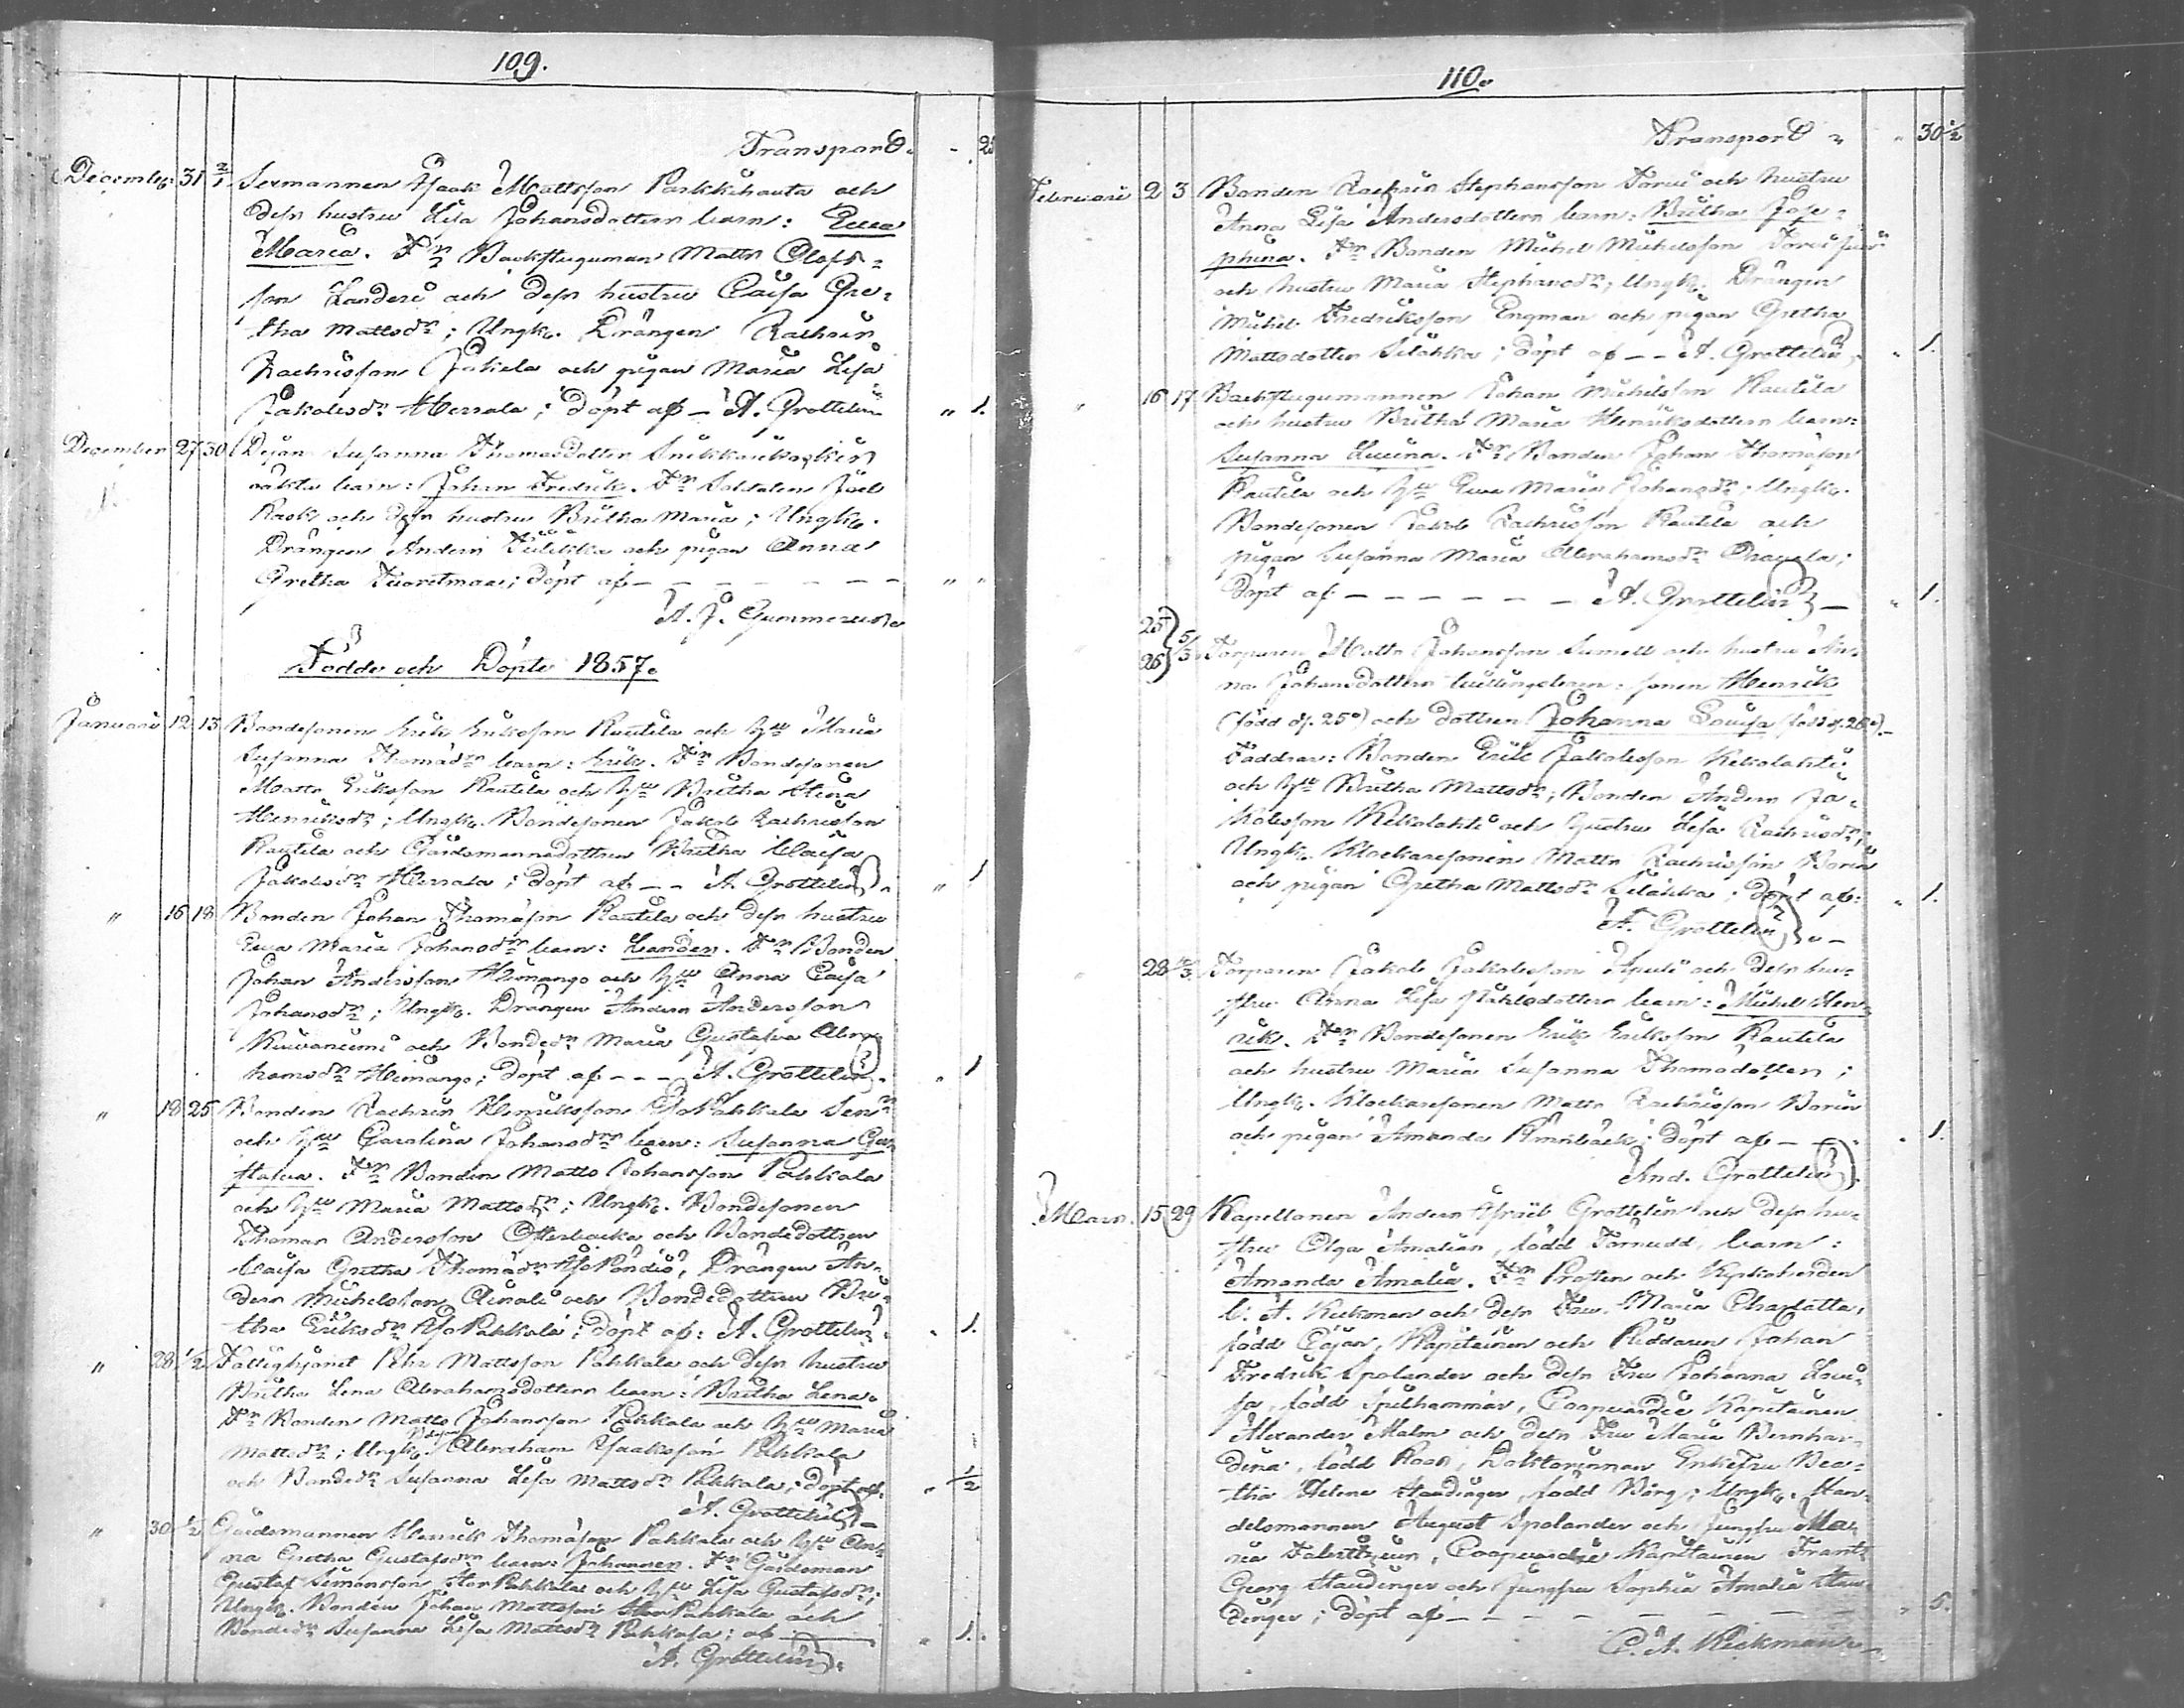 109.
Transport. - 25
December 31 2/1 Sexmannen Isaak Mattsson Parkkihauta och
dess hustru Lisa Johansdotters barn: Ewa
Maria. Fr. Backstuguman Matts Olofs-
son Landeri och dess hustru Caisa Gre-
tha Mattsdr; Ungk. Drängen Zachris
Zachrisson Jakiela och pigan Maria Lisa
Jakobsdr Merrala; döpt af - A. Grottelin " 1.
December 27 30 Dejan Susanna Thomasdotter
oäkta barn: Johan Fredrik. Fr. Soldaten Joel
Rask och dess hustru Britha Maria; Ungk.
Drängen Anders och pigan Anna
Gretha Tuoretmaa; döpt af - - - - - - - " "
A. J. Gummerus
Födde och Döpte 1857.
Januari 12 13 Bondesonen Erik Eriksson Rautila och hu Maria
Susanna Thomasdrs barn: Erik. Fr. Bondesonen
Matts Eriksson Rautila och hu Britha Stina
Henriksdr; Ungk. Bondesonen Jakob Zachrisson
Rautila och Gårdsmansdottren Britha Caisa
Jakobsdr Merrala; döpt af - - A. Grottelin " 1
" 16 18 Bonden Johan Thomasson Rautila och dess hustru
Ewa Maria Johansdrs barn: Leander. Fr. Bonden
Johan Andersson Heimango och hu Anna Caisa
Johansdr; Ungk. Drängen Anders Andersson
Kiwiniemi och Bondedr Maria Gustafva Abra-
hamsdr Heimango; döpt af - - - A. Grottelin. " 1
" 18 25 Bonden Zachris Henriksson IsoPahkala Senr
och hu Carolina Johansdrs barn: Susanna Gu-
stafva. Fr. Bonden Matts Johansson Pahkala
och hu Maria Mattsdr; Ungk. Bondesonen
Thomas Andersson Ofterbacka och Bondedottren
Caisa Gretha Thomasdr IsoPöndiö, Drängen An-
ders Michelsson Ainali och Bondedottren Bri-
tha Eriksdr IsoPahkala; döpt af: A. Grottelin " 1.
" 28 1/2 Fattighjonet Pehr Mattsson Pahkala och dess hustru
Britha Lena Abrahamsdotters barn: Britha Lena.
Fr. Bonden Matts Johansson Pahkala och hu Maria
Mattsdr; Ungk. Abraham Isaaksson Pahkala
och Bondedr Susanna Lisa Mattsdr Pahkala; döpt af: " 1/2
A. Grottelin -
" 30 1/2 Gårdsmannen Henrik Thomasson Pahkala och hu An-
na Gretha Gustafsdrs barn: Johannes. Fr. Gårdsman
Gustaf Simonsson StorPahkala och hu Lisa Gustafsdr;
Ungk. Bonden Johan Mattsson StorPahkala och
Bondedr Susanna Lisa Mattsdr Pahkala; af " 1.
A. Grottelin.
110.
Transport " " 30 1/2
Februari 2 3 Bonden Zachris Stephansson Torvi och hustru
Anna Lisa Andersdotters barn: Britha Jose-
phina. Fr. Bonden Michel Michelsson Torvi
och hustru Maria Stephansdr; Ungk. Drängen
Michel Fredriksson Engman och pigan Gretha
Mattsdotter Siläkka; döpt af - - A. Grottelin " 1.
" 16 17 Backstugumannen Johan Michelsson Rautila
och hustru Britha Maria Henriksdotters barn:
Susanna Lucina. Fr. Bonden Johan Thomasson
Rautila och hu Ewa Maria Johansdr; Ungk.
Bondesonen Jakob Zachrisson Rautila och
pigan Susanna Maria Abrahamsdr;
döpt af - - - - - - A. Grottelin - " 1.
25 26 5/3 Torparen Matts Johansson Sumell och hustru An-
na Johansdotters tvillingebarn: sonen Henrik
(född d. 25e) och dottren Johanna Lovisa (född d. 26e). -
Faddrar: Bonden Erik Jakobsson Kekolahti
och hu Britha Mattsdr; Bonden Anders Ja-
kobsson Kekolahti och hustru Lisa Zachrisdr;
Ungk. Klockaresonen Matts Zachrisson Borin
och pigan Gretha Mattsdr Siläkka; döpt af: " 1.
A. Grottelin " -
28 Torparen Jakob Jakobsson Ypyä och dess hu-
stru Anna Lisa Påhlsdotters barn: Michel Hen-
rik. Fr. Bondesonen Erik Eriksson Rautila
och hustru Maria Susanna Thomasdotter;
Ungk. Klockaresonen Matts Zachrisson Borin
och pigan Amanda Almbäck; döpt af - - " 1.
And. Grottelin.
Mars 15 29 Kapellanen Anders Grottelin och dess hu-
stru Olga Amalias, född Törnudd, barn:
Amanda Amalia. Fr. Prosten och Kyrkoherden
C. A. Keckman och dess Fru Maria Charlotta,
född Cajan, Kapitainen och Riddaren Johan
Fredrik Spolander och dess Fru Johanna Lovi-
sa, född Spilhammar, Coopvardie Kapitainen
Alexander Malm och dess Fru Maria Bernhar-
dina, född Roos, Doktorinnan Enkefru Bea-
tha Helena Staudinger, född Borg; Ungk. Han-
delsmannen August Spolander och Jungfru Ma-
ria, Coopvardie Kapitainen Frantz
Georg Staudinger och Jungfru Sophia Amalia Stau-
dinger; döpt af - - - - - - - " 5.
C. A. Keckman